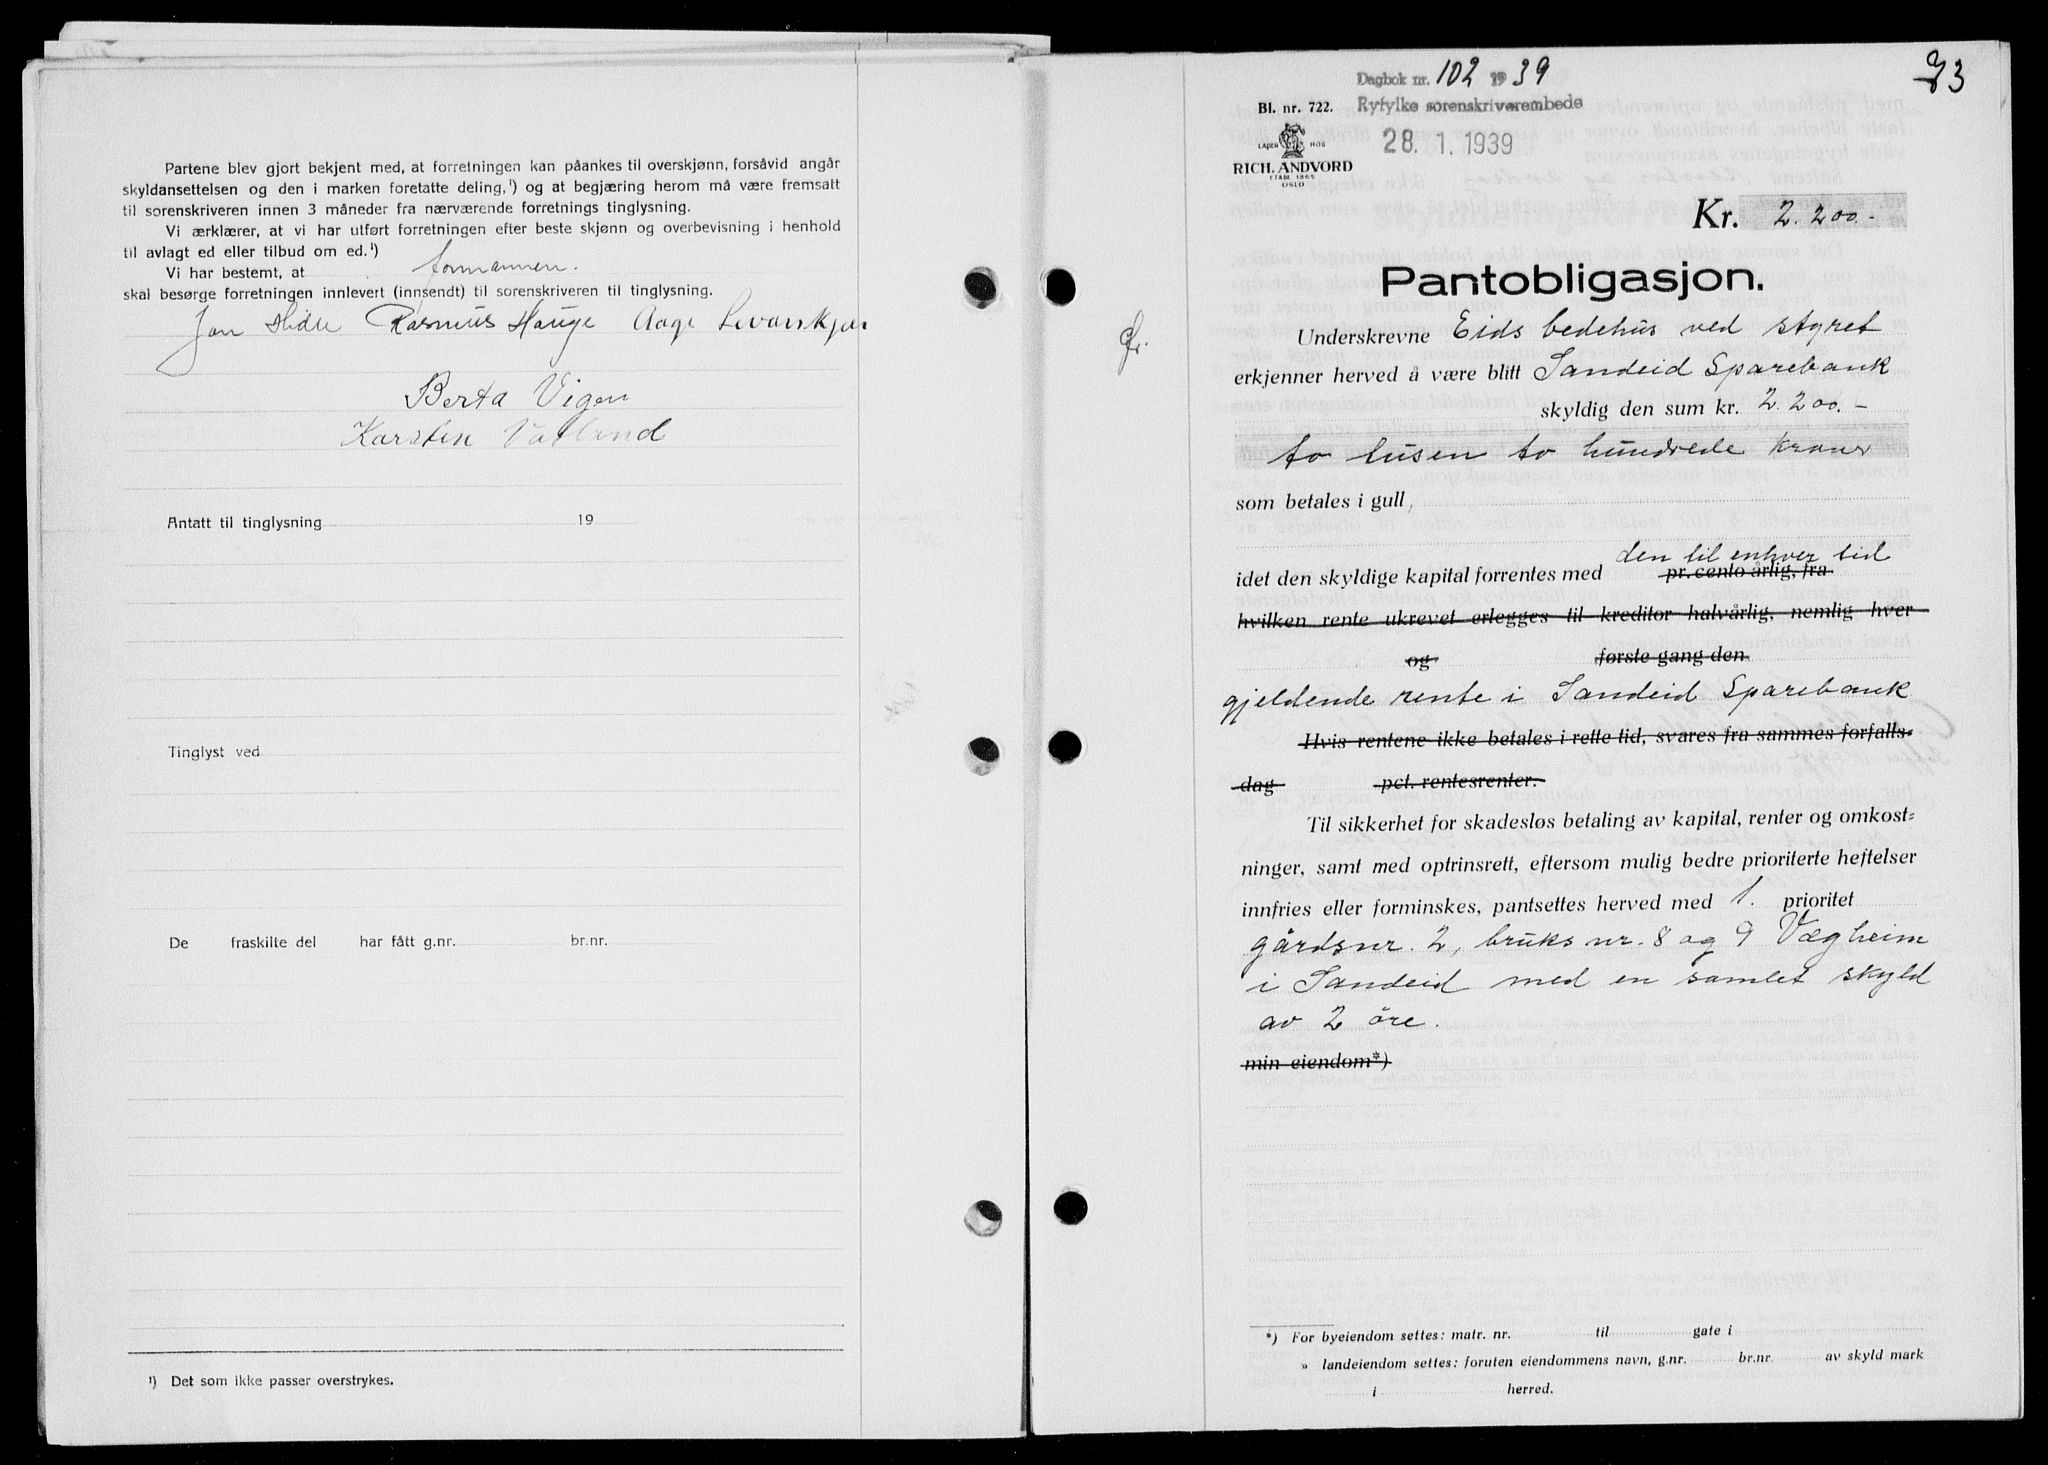 Partene blev gjort bekjent med, at forretningen kan påankes til overskjønn, forsåvid angår
skyldansettelsen og den i marken foretatte deling,¹) og at begjæring herom må være fremsatt
til sorenskriveren innen 3 måneder fra nærværende forretnings tinglysning.
Vi ærklærer, at vi har utført forretningen efter beste skjønn og overbevisning i henhold
til avlagt ed eller tilbud om ed.¹)
Vi har bestemt, at formannen.
skal besørge forretningen innlevert (innsendt) til sorenskriveren til tinglysning.
Jon Hidle Rasmus Hauge Aage
Berta Vigen
Karsten Vatland
Antatt til tinglysning 19
Tinglyst ved
De fraskilte del har fått g.nr. br.nr.
¹) Det som ikke passer overstrykes.
73
Dagbok nr. 102 1939
Bl. nr. 722. Ryfylke sorenskriverembede
LAGER HOS 28. 1. 1939
RICH. ANDVORD
ETABL. 1865
OSLO
Kr. 2.200.-
Pantobligasjon.
Underskrevne Eids bedehus ved styret
erkjenner herved å være blitt Sandeid Sparebank
skyldig den sum kr. 2.200.-
to tusen to hundrede kroner
som betales i gull,
den til enhver tid
idet den skyldige kapital forrentes med pr. cento årlig, fra
hvilken rente ukrevet erlegges til kreditor halvårlig, nemlig hver
og første gang den
gjeldende rente i Sandeid Sparebank
Hvis rentene ikke betales i rette tid, svares fra sammes forfalls-
dag pct. rentesrenter.
Til sikkerhet for skadesløs betaling av kapital, renter og omkost-
ninger, samt med optrinsrett, eftersom mulig bedre prioriterte heftelser
innfries eller forminskes, pantsettes herved med 1. prioritet
gårdsnr. 2, bruksnr. 8 og 9 Vægheim
i Sandeid med en samlet skyld
av 2 öre.
min eiendom*)
*) For byeiendom settes: matr. nr. til gate i
» landeiendom settes: foruten eiendommens navn, g.nr. br.nr. av skyld mark
i herred.